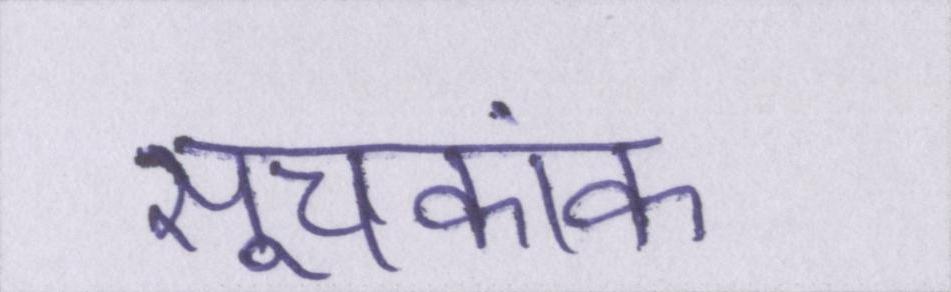 सूचकांक